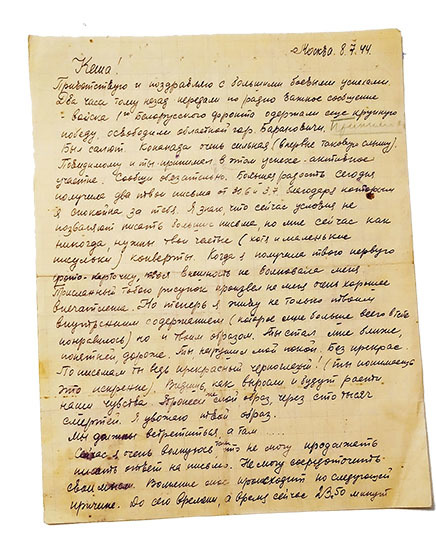 Москва. 8.7.44.
Кеша!
Приветствую и поздравляю с большими боевыми успехами.
Два часа тому назад передали по радио важное сообщение
войска 1го Белорусского фронта одержали еще крупную
победу, освободили областной гор. Барановичи.
Был салют. Канонада очень сильная (впервые такую слышу).
Повидимому и ты принимал в этом успехе активное
участие. Сообщи обязательно. Большая радость сегодня
получила два твои письма от 30.6 и 3.7 благодаря которым
я спокойна за тебя. Я знаю, что сейчас условия не
позволяют писать большие письма, но мне сейчас как
никогда, нужны твои частые (хотя и маленькие
) конверты. Когда я получила твою первую
фото-карточку, твоя внешность не волновала меня.
Присланный тобою рисунок произвел на меня очень хорошее
впечатление. Но теперь я живу не только твоим
внутренним содержанием (которое мне больше всего в тебе
понравилось) но и твоим образом. Ты стал мне ближе,
понятней дороже. Ты нарушил мой покой. Без прикрас.
По письмам ты ведь прекрасный ! (ты понимаешь
это искренне). Видишь, как выросли и будут расти
наши чувства. мой образ через сто тысяч
смертей. Я уважаю твой образ.
Мы должны встретиться, а там ...
Сейчас я очень волнуюсь что не могу продолжать
писать ответ на письмо. Не могу сосредоточить
свои мысли. Волнение мое происходит по следующей
причине. До сего времени, а время сейчас 23.50 минут